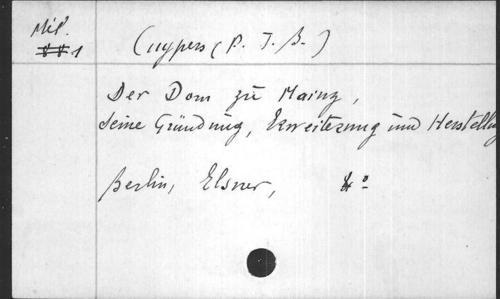 Mil.
Cuypers (P. J. B.)
Der Dom zu Mainz,
seine Gründung, Erweiterung und Herstellg
Berlin, Elsner, 4º